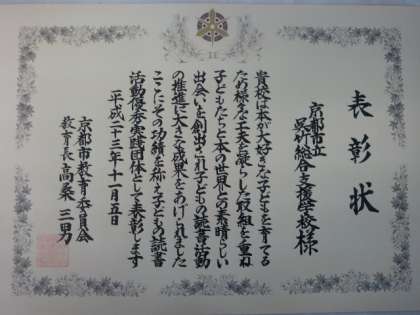 表彰状
京都市立
呉竹総合支援学校様
貴校は本が大好きな子どもを育てる
ため様々な工夫を凝らした取組を重ね
子どもたちと本の世界との素晴らしい
出会いを創出され子どもの読書活動
の推進に大きな成果をあげられました
ここにその功績を称え子どもの読書
活動優秀実践団体として表彰します
平成二十三年十一月五日
京都市教育委員会
教育長高桑三男